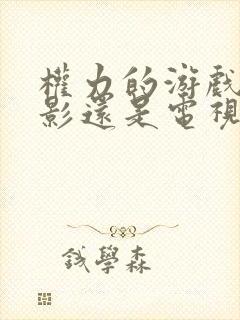 權力的游戲
影還是電視
錢學森